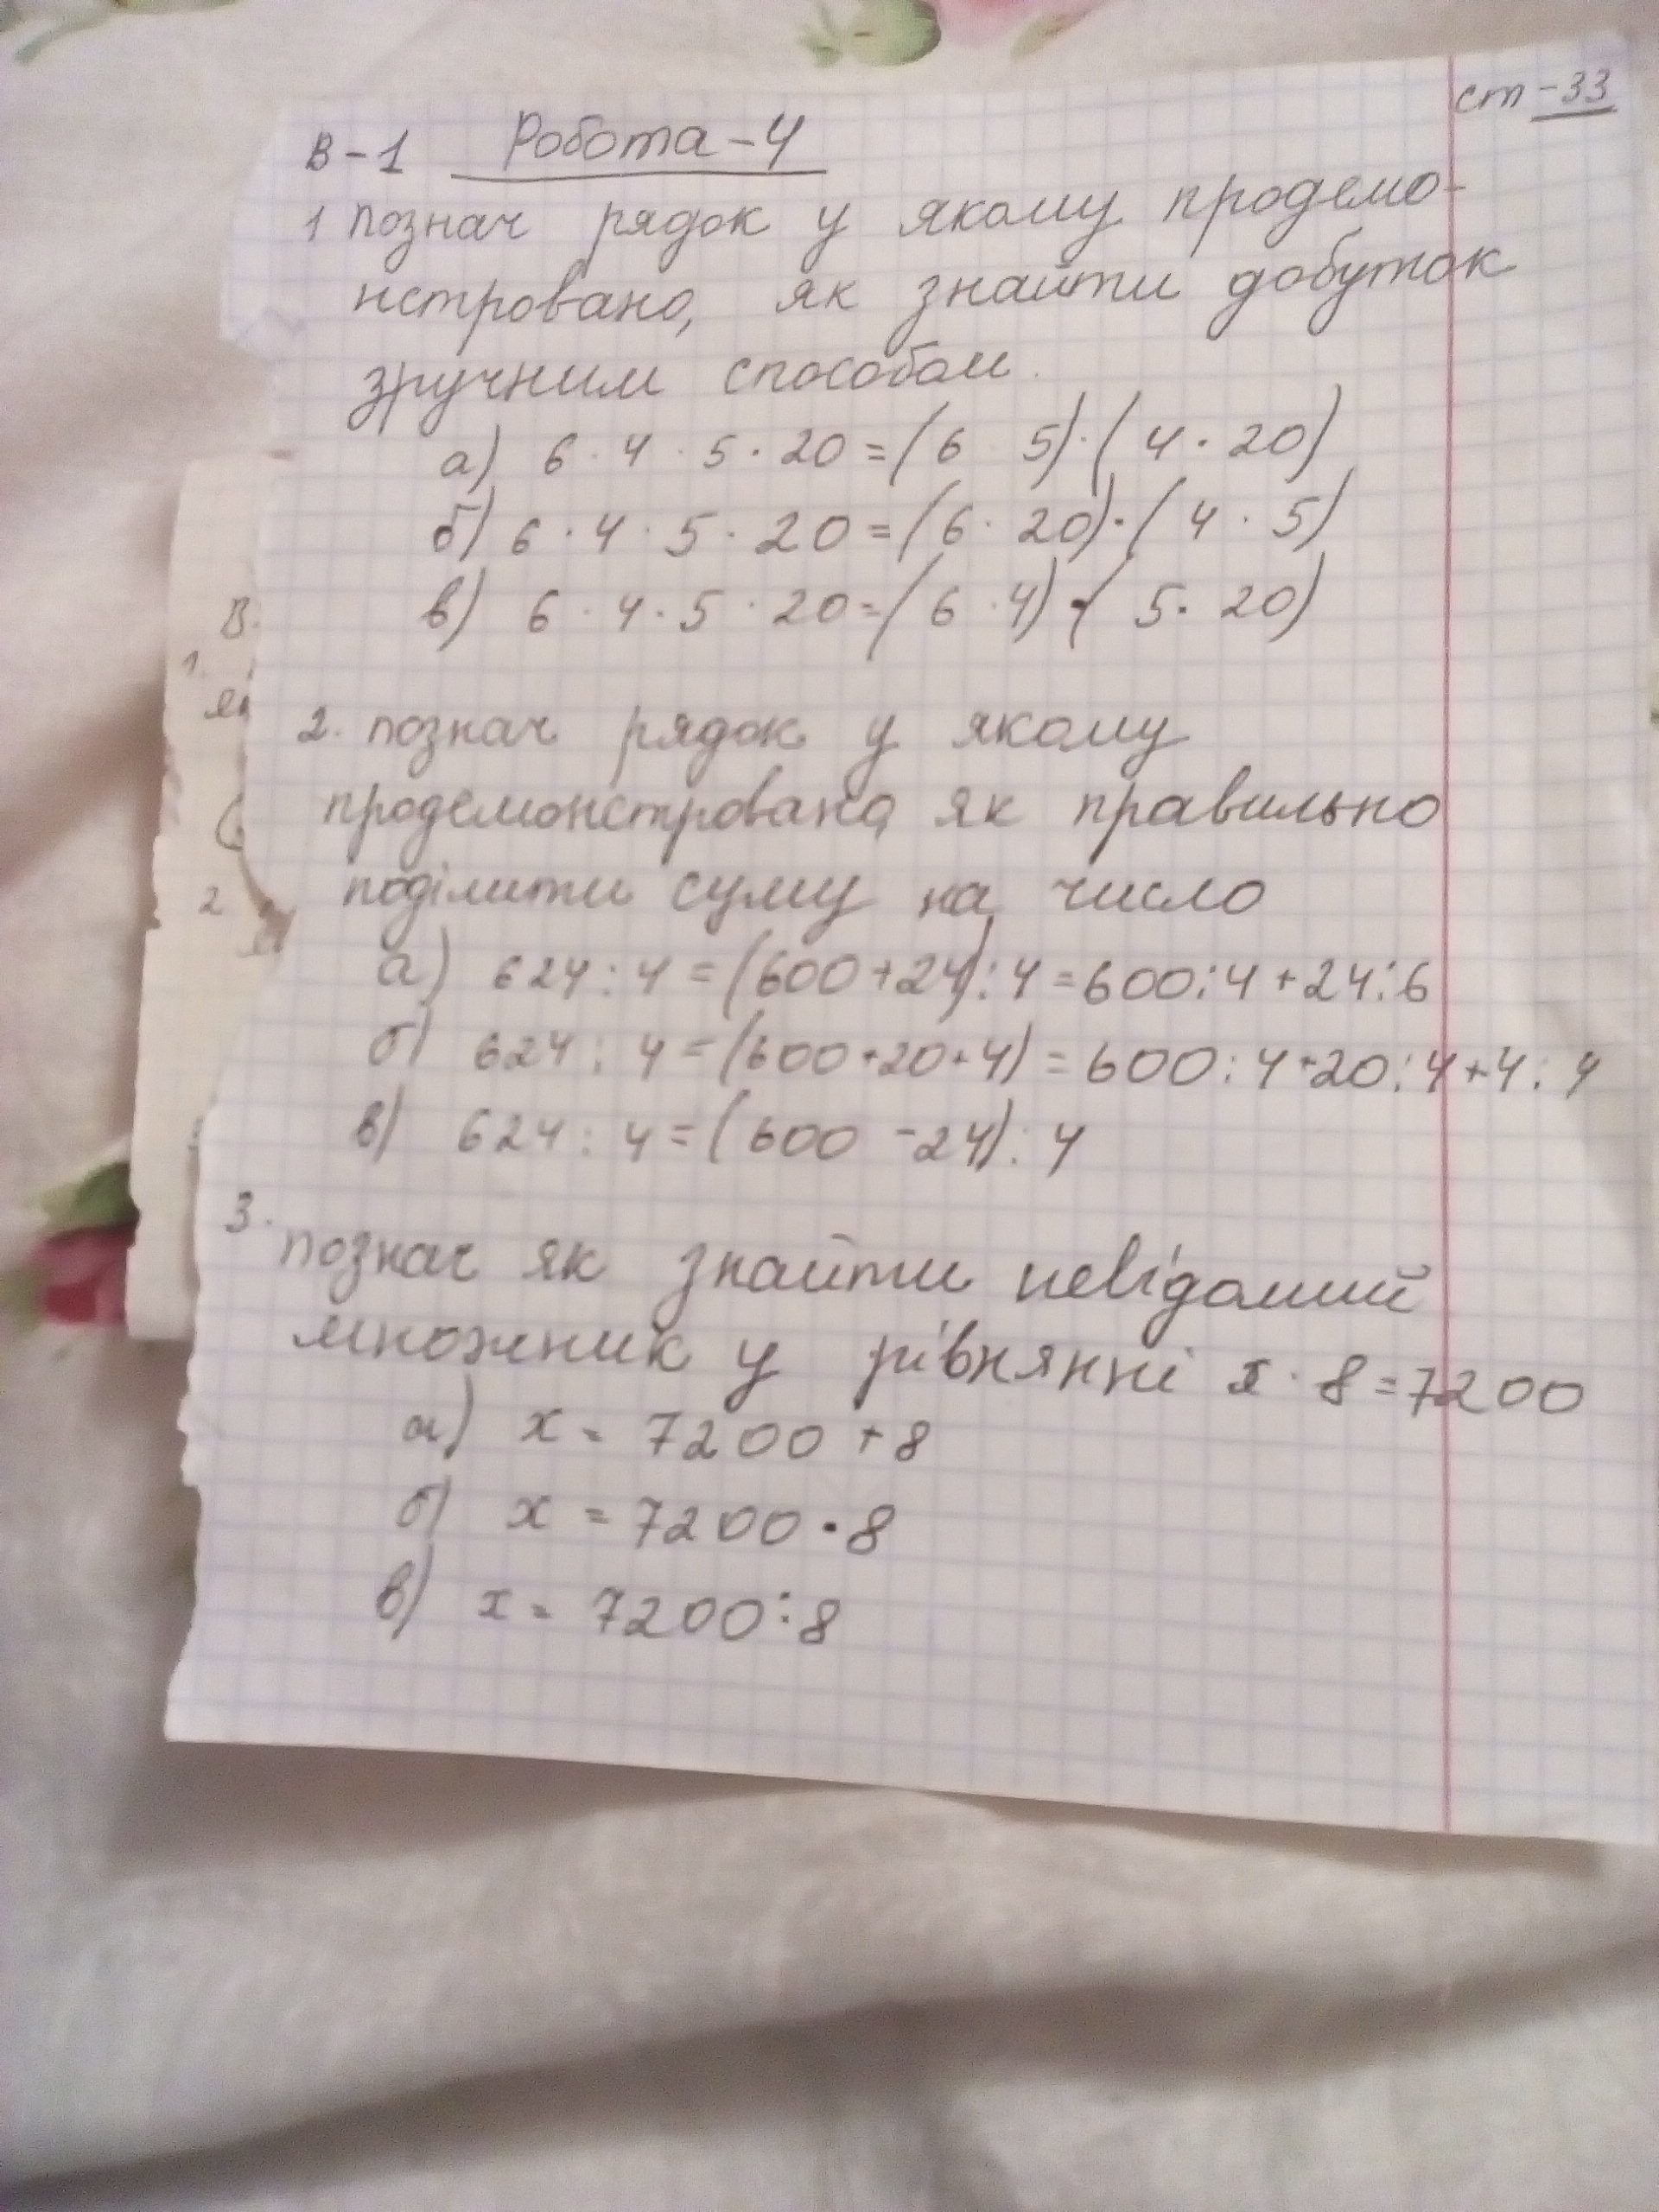 ст-33
В-1 Робота-4
1 познач рядок у якому продемо-
нстровано, як знайти добуток
зручним способом.
а) 6 · 4 · 5 · 20 = (6 5) · (4 · 20)
б) 6 · 4 · 5 · 20 = (6 · 20) · (4 · 5)
в) 6 · 4 · 5 · 20 = (6 · 4) · (5 · 20)
2. познач рядок у якому
продемонстровано, як правильно
поділити суму на число
а) 624 : 4 = (600 + 24) : 4 = 600 : 4 + 24 : 6
б) 624 : 4 = (600 + 20 + 4) = 600 : 4 + 20 : 4 + 4 : 4
в) 624 : 4 = (600 - 24) : 4
3. познач як знайти невідомий
множник у рівнянні x · 8 = 7200
а) x = 7200 + 8
б) x = 7200 · 8
в) x = 7200 : 8
В.
1.
2